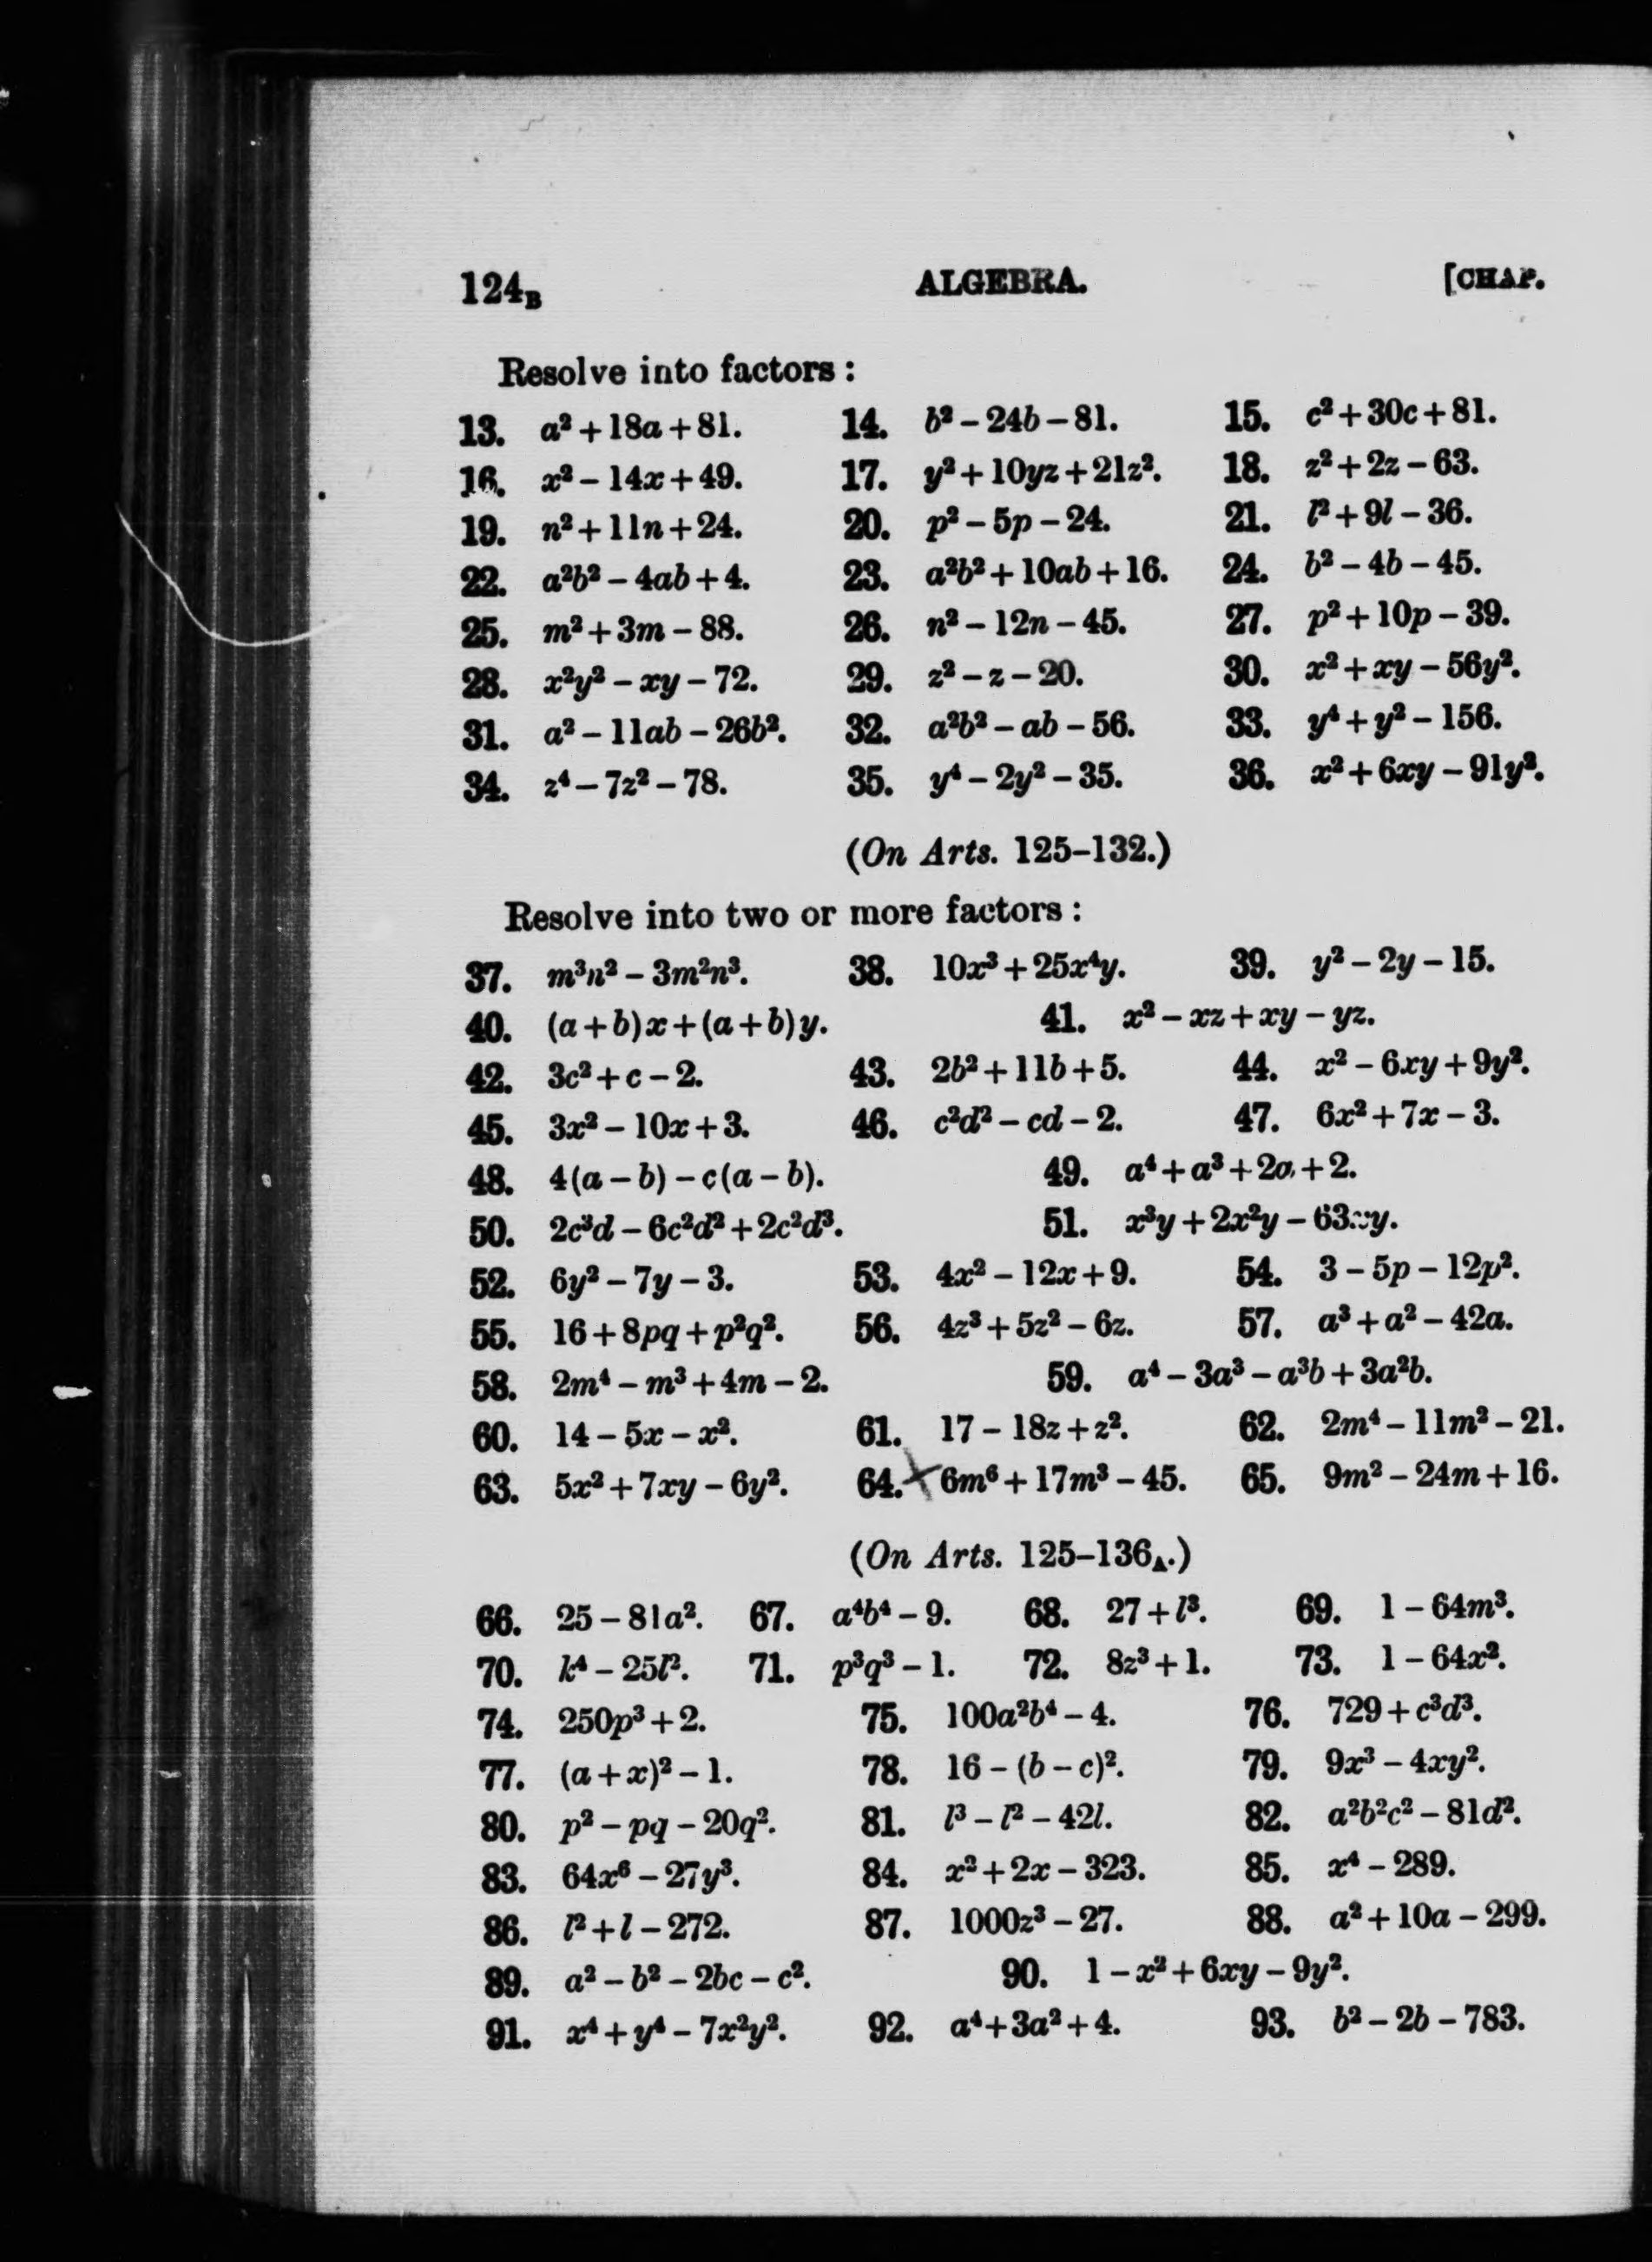 124B ALGEBRA. [CHAP.
Resolve into factors :
13. a² + 18a + 81. 14. b² – 24b – 81. 15. c² + 30c + 81.
16. x² – 14x + 49. 17. y² + 10yz + 21z². 18. z² + 2z – 63.
19. n² + 11n + 24. 20. p² – 5p – 24. 21. l² + 9l – 36.
22. a²b² – 4ab + 4. 23. a²b² + 10ab + 16. 24. b² – 4b – 45.
25. m² + 3m – 88. 26. n² – 12n – 45. 27. p² + 10p – 39.
28. x²y² – xy – 72. 29. z² – z – 20. 30. x² + xy – 56y².
31. a² – 11ab – 26b². 32. a²b² – ab – 56. 33. y⁴ + y² – 156.
34. z⁴ – 7z² – 78. 35. y⁴ – 2y² – 35. 36. x² + 6xy – 91y².
(On Arts. 125–132.)
Resolve into two or more factors :
37. m³n² – 3m²n³. 38. 10x³ + 25x⁴y. 39. y² – 2y – 15.
40. (a + b)x + (a + b)y. 41. x² – xz + xy – yz.
42. 3c² + c – 2. 43. 2b² + 11b + 5. 44. x² – 6xy + 9y².
45. 3x² – 10x + 3. 46. c²d² – cd – 2. 47. 6x² + 7x – 3.
48. 4(a – b) – c(a – b). 49. a⁴ + a³ + 2a + 2.
50. 2c³d – 6c²d² + 2c²d³. 51. x³y + 2x²y – 63xy.
52. 6y² – 7y – 3. 53. 4x² – 12x + 9. 54. 3 – 5p – 12p².
55. 16 + 8pq + p²q². 56. 4z³ + 5z² – 6z. 57. a³ + a² – 42a.
58. 2m⁴ – m³ + 4m – 2. 59. a⁴ – 3a³ – a³b + 3a²b.
60. 14 – 5x – x². 61. 17 – 18z + z². 62. 2m⁴ – 11m² – 21.
63. 5x² + 7xy – 6y². 64. 6m⁶ + 17m³ – 45. 65. 9m² – 24m + 16.
(On Arts. 125–136A.)
66. 25 – 81a². 67. a⁴b⁴ – 9. 68. 27 + l³. 69. 1 – 64m³.
70. k⁴ – 25l². 71. p³q³ – 1. 72. 8z³ + 1. 73. 1 – 64x².
74. 250p³ + 2. 75. 100a²b⁴ – 4. 76. 729 + c³d³.
77. (a + x)² – 1. 78. 16 – (b – c)². 79. 9x³ – 4xy².
80. p² – pq – 20q². 81. l³ – l² – 42l. 82. a²b²c² – 81d².
83. 64x⁶ – 27y³. 84. x² + 2x – 323. 85. x⁴ – 289.
86. l² + l – 272. 87. 1000z³ – 27. 88. a² + 10a – 299.
89. a² – b² – 2bc – c². 90. 1 – x² + 6xy – 9y².
91. x⁴ + y⁴ – 7x²y². 92. a⁴ + 3a² + 4. 93. b² – 2b – 783.